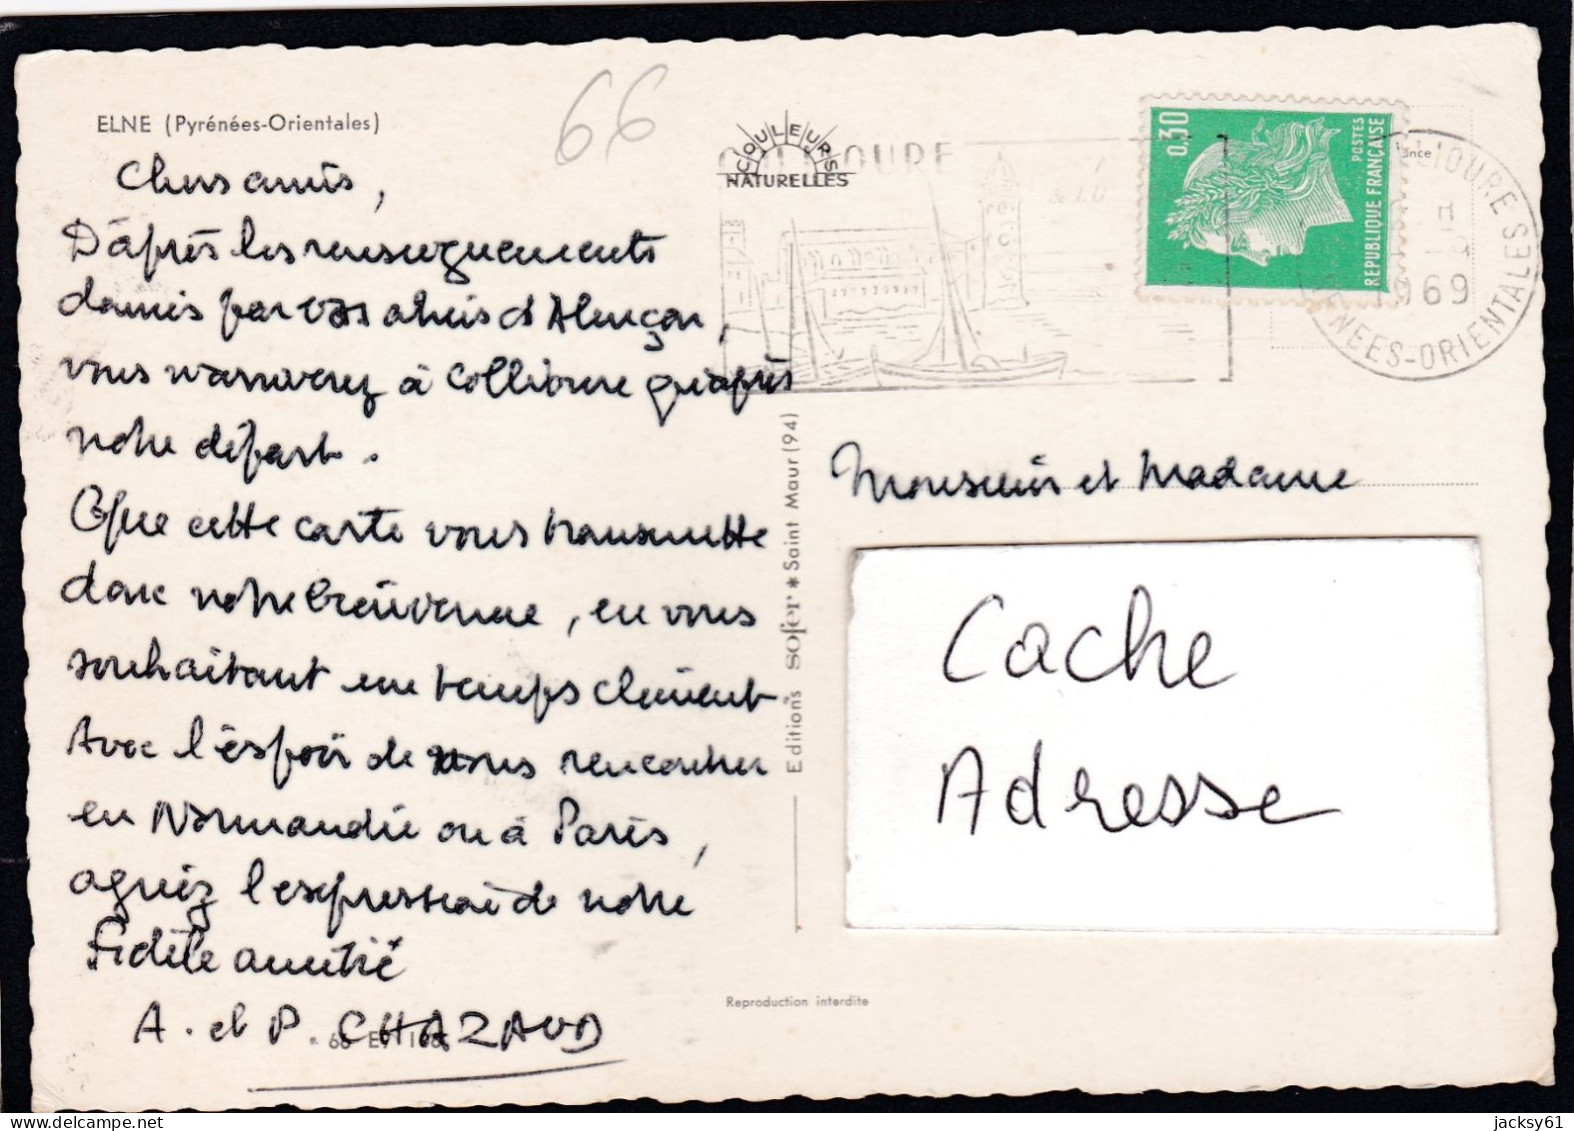 ELNE (Pyrénées-Orientales)
66
Chers amis,
D'après les renseignements
donnés par vos amis d'Alençon,
vous n'arriverez à Collioure qu'après
notre départ.
Que cette carte vous transmette
donc notre bienvenue, en vous
souhaitant un temps clément.
Avec l'espoir de vous rencontrer
en Normandie ou à Paris,
agréez l'expression de notre
fidèle amitié
A. et P. CHAZAUD
COULEURS
NATURELLES
COLLIOURE
0,30
POSTES
REPUBLIQUE FRANÇAISE
COLLIOURE
1969
PYRENEES-ORIENTALES
Editions sofer * Saint Maur (94)
Monsieur et Madame
Cache
Adresse
Reproduction interdite
www.delcampe.net
jacksy61